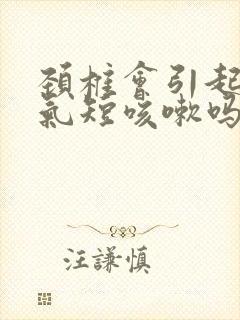 颈椎會引起
氣短咳嗽吗
汪謙慎